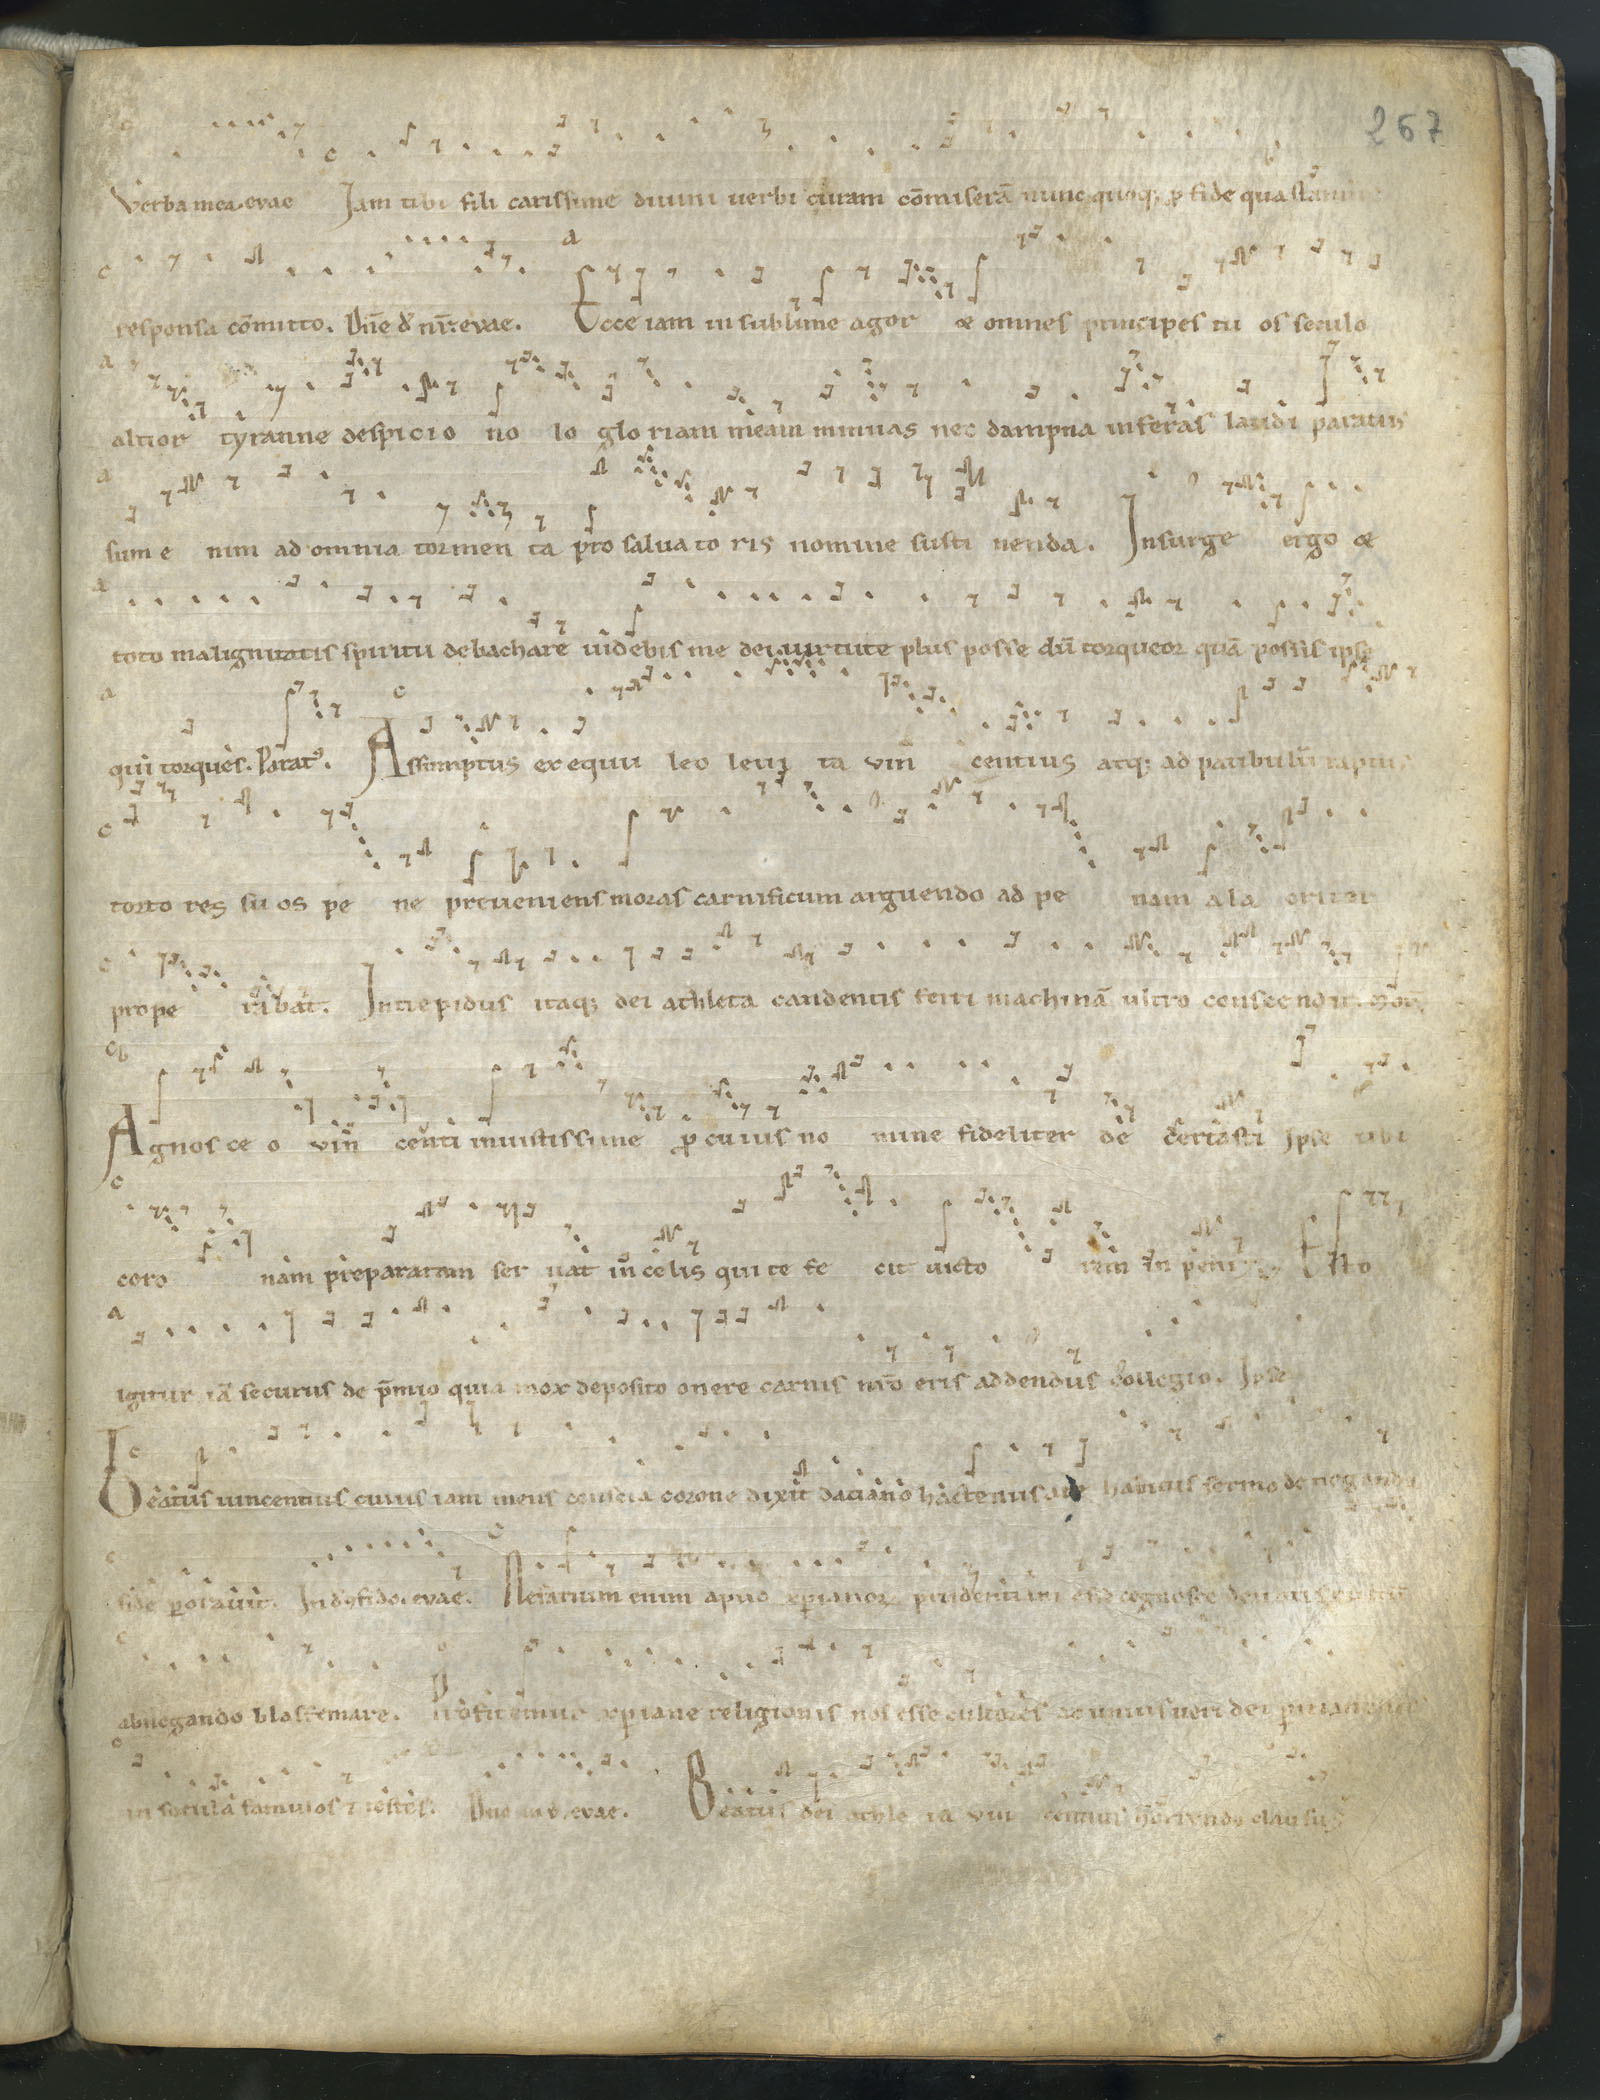 267
Verba mea. evae Jam tibi fili carissime diuini uerbi curam cōmiserā nunc quoq; ꝓ fide qua stamus
responsa cōmitto. Dn̄e d̄s nr̄. evae. Ecce iam in sublime agor & omnes principes tu os seculo
altior tyranne despicio no lo glo riam meam minuas nec dampna inferas laudi paratus
sum e nim ad omnia tormen ta pro salua to ris nomine susti nenda. Insurge ergo &
toto malignitatis spiritu debachare uidebis me dei uirtute plus posse dū torqueor quā possis ipse
qui torques. Parat᾽. Assumptus ex equu leo leui ta vin centius atq; ad patibulū raptus
torto res su os pe ne preueniens moras carnificum arguendo ad pe nam a la criter
prope ra bat. Intrepidus itaq; dei athleta candentis ferri machinā ultro conscendit.
Agnos ce o vin centi inuictissime ꝓ cuius no mine fideliter de certasti ipse tibi
coro nam preparatam ser uat in celis qui te fe cit uicto rem in penis Esto
igitur iā securus de p̄mio quia mox deposito onere carnis nr̄o eris addendus collegio. Ipse
Beatus uincentius cuius iam mens conscia corone dixit daciano hactenus a te habitus sermo de neganda
fide ꝑorauit. In dn̄o fido. evae. Nefarium enim apud xp̄ianorꝫ prudentiam esse cognosce
abnegando blasfemare. Profitemur xp̄iane religionis nos esse cultores ac unius ueri dei
in secula famulos ⁊ testes. Dn̄e evae. Beatus dei athle ta vin centius clausus